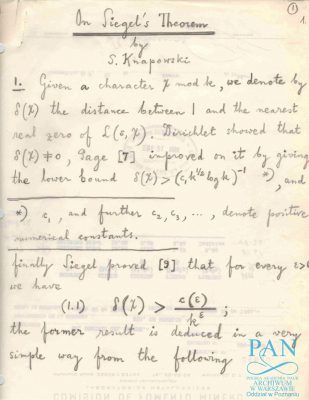 ①
1.
On Siegel's Theorem
by
S. Knapowski
1. Given a character χ mod k, we denote by
δ(χ) the distance between 1 and the nearest
real zero of L(s, χ). Dirichlet showed that
δ(χ) ≠ 0, Page [7] improved on it by giving
the lower bound δ(χ) > (c₁ k^{1/2} log k)^{-1} *), and
*) c₁, and further c₂, c₃, ..., denote positive
numerical constants.
finally Siegel proved [9] that for every ε>0
we have
(1.1) δ(χ) > c(ε)/k^ε ;
the former result is deduced in a very
simple way from the following
PAN
POLSKA AKADEMIA NAUK
ARCHIWUM
W WARSZAWIE
Oddział w Poznaniu